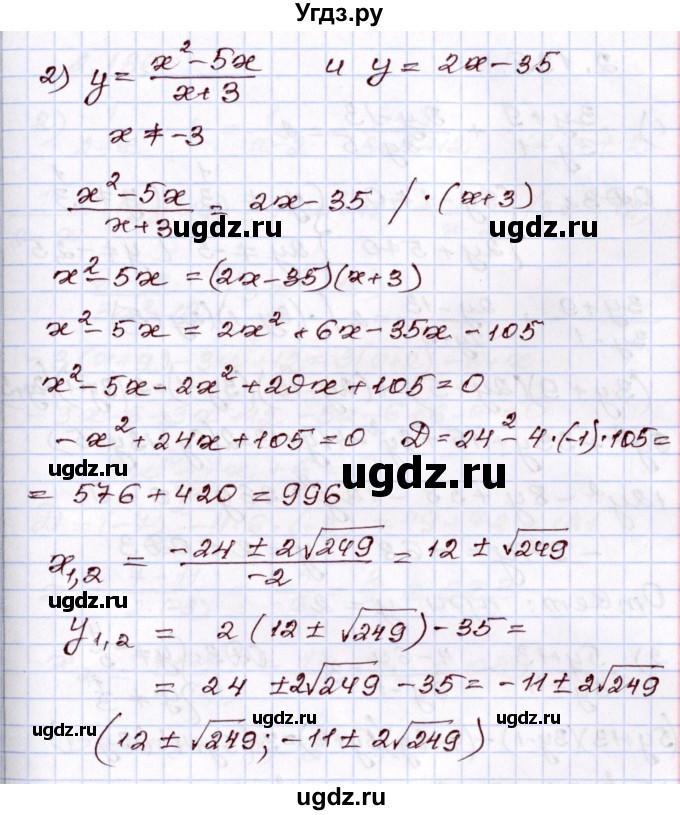 Угдз.ру
2) y = (x² - 5x)/(x + 3) и y = 2x - 35
x ≠ -3
(x² - 5x)/(x + 3) = 2x - 35 / · (x + 3)
ugdz.ru ugdz.ru
x² - 5x = (2x - 35)(x + 3)
x² - 5x = 2x² + 6x - 35x - 105
x² - 5x - 2x² + 29x + 105 = 0
-x² + 24x + 105 = 0 D = 24² - 4 · (-1) · 105 =
ugdz.ru ugdz.ru ugdz.ru
= 576 + 420 = 996
x₁,₂ = (-24 ± 2√249)/(-2) = 12 ± √249
ugdz.ru ugdz.ru
y₁,₂ = 2(12 ± √249) - 35 =
= 24 ± 2√249 - 35 = -11 ± 2√249
ugdz.ru ugdz.ru ugdz.ru
(12 ± √249; -11 ± 2√249)
ugdz.ru